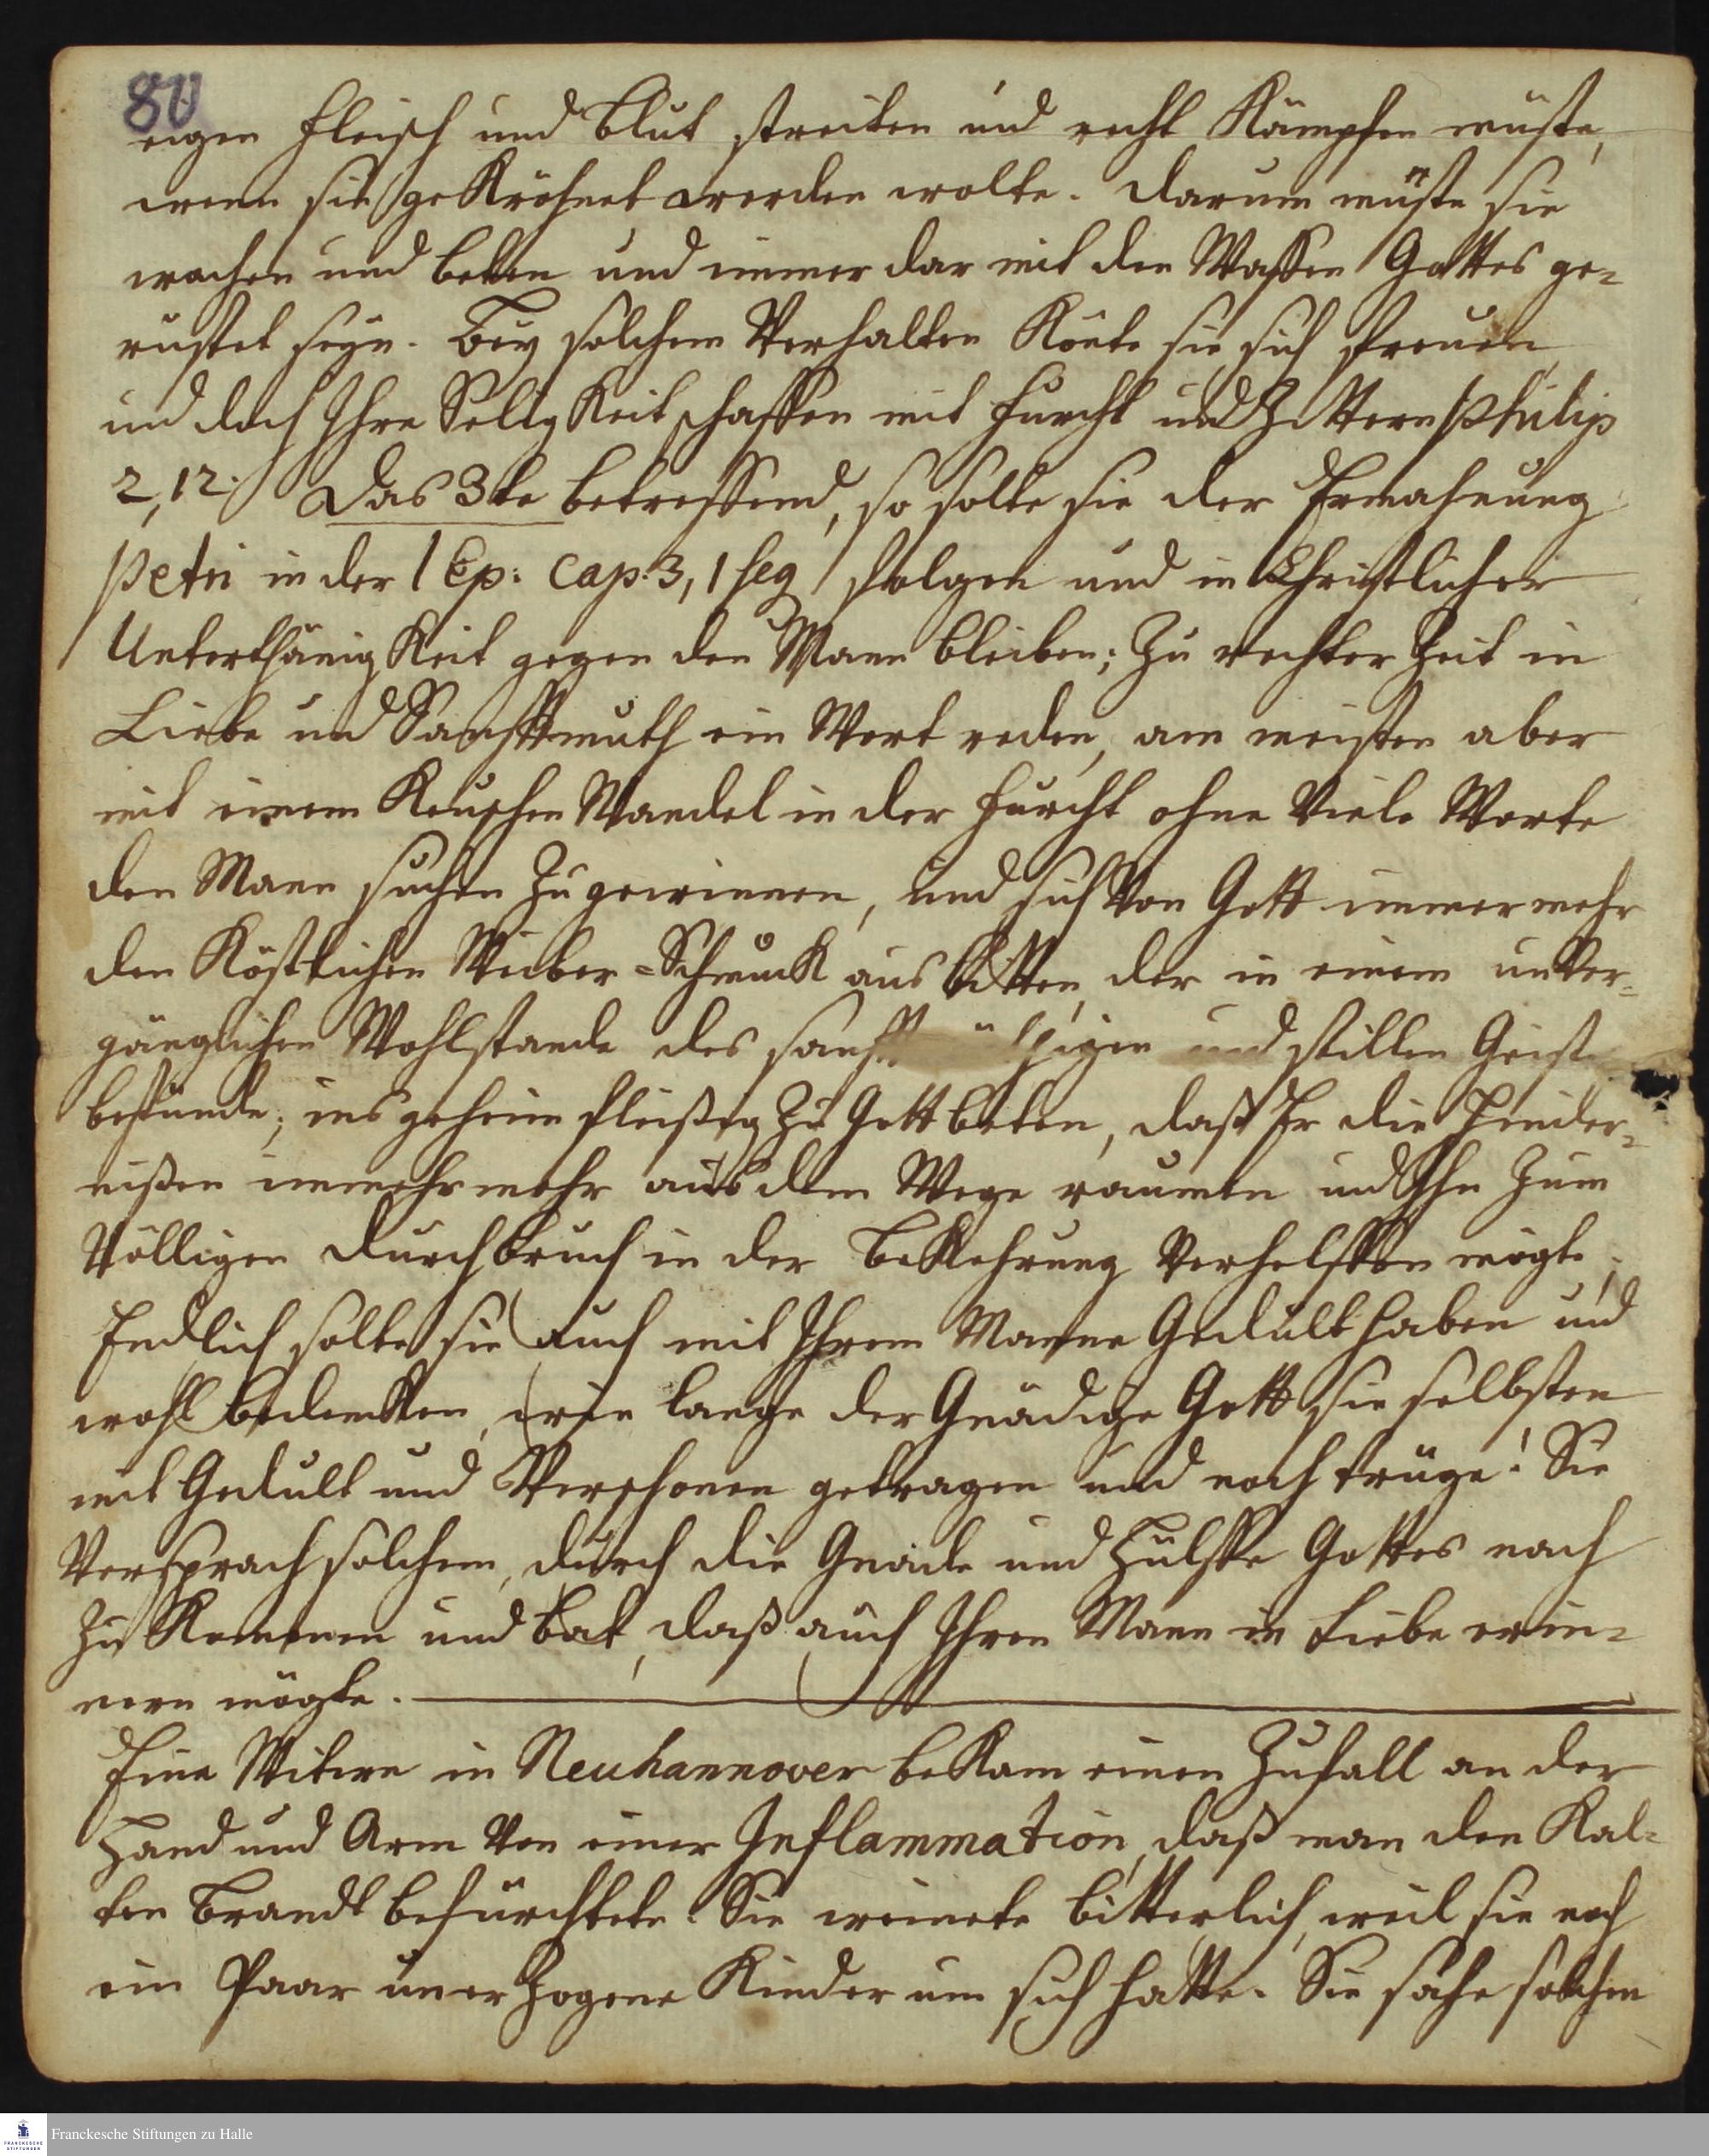 80
eigen Fleisch und Blut streiten und recht Kämpfen müste,
wenn sie gekröhnet werden wolte. Darum müste sie
wachen und beten und immer dar mit den Waffen Gottes ge-
rüstet seyn. Bey solchem Verhalten Könte sie sich freuen
und doch Ihre Seligkeit schaffen mit Furcht und Zittern Philip
2,12. Das 3te betreffend, so solte sie der Ermahnung
Petri in der 1 Ep: Cap. 3, 1 seq folgen und in Christlicher
Unterthänigkeit gegen den Mann bleiben; Zu rechter Zeit in
Liebe und Sanfftmuth ein Wort reden, am meisten aber
mit einem Keuschen Wandel in der Furcht ohne Viele Worte
den Mann suchen Zu gewinnen, und sich Von Gott immer mehr
den Köstlichen Weiber-Schmuck aus bitten, der in einem unver-
gänglichen Wohlstande des sanfftmüthigen und stillen Geistes
bestünde; ins geheim fleißig Zu Gott beten, daß Er die Hinder-
nißen immehr mehr aus dem Wege raumen und Ihn Zum
Völligen Durchbruch in der Bekehrung Verhelffen mögte.
Endlich solte sie auch mit Ihrem Manne Gedult haben und
wohl bedencken, wie lange der Gnädige Gott sie selbsten
mit Gedult und Verschonen getragen und noch trüge! Sie
Versprach solchem, durch die Gnade und Hülffe Gottes nach
Zu Kommen und bat, daß auch Ihren Mann in Liebe erin-
nern mögte.
Eine Witwe in Neuhannover bekam einen Zufall an der
Hand und Arm Von einer Inflammation, daß man den Kal-
ten Brandt befürchtete. Sie weinete bitterlich, weil sie noch
ein Paar unerzogene Kinder um sich hatte. Sie sahe solchen
Franckesche Stiftungen zu Halle
FRANCKESCHE
STIFTUNGEN